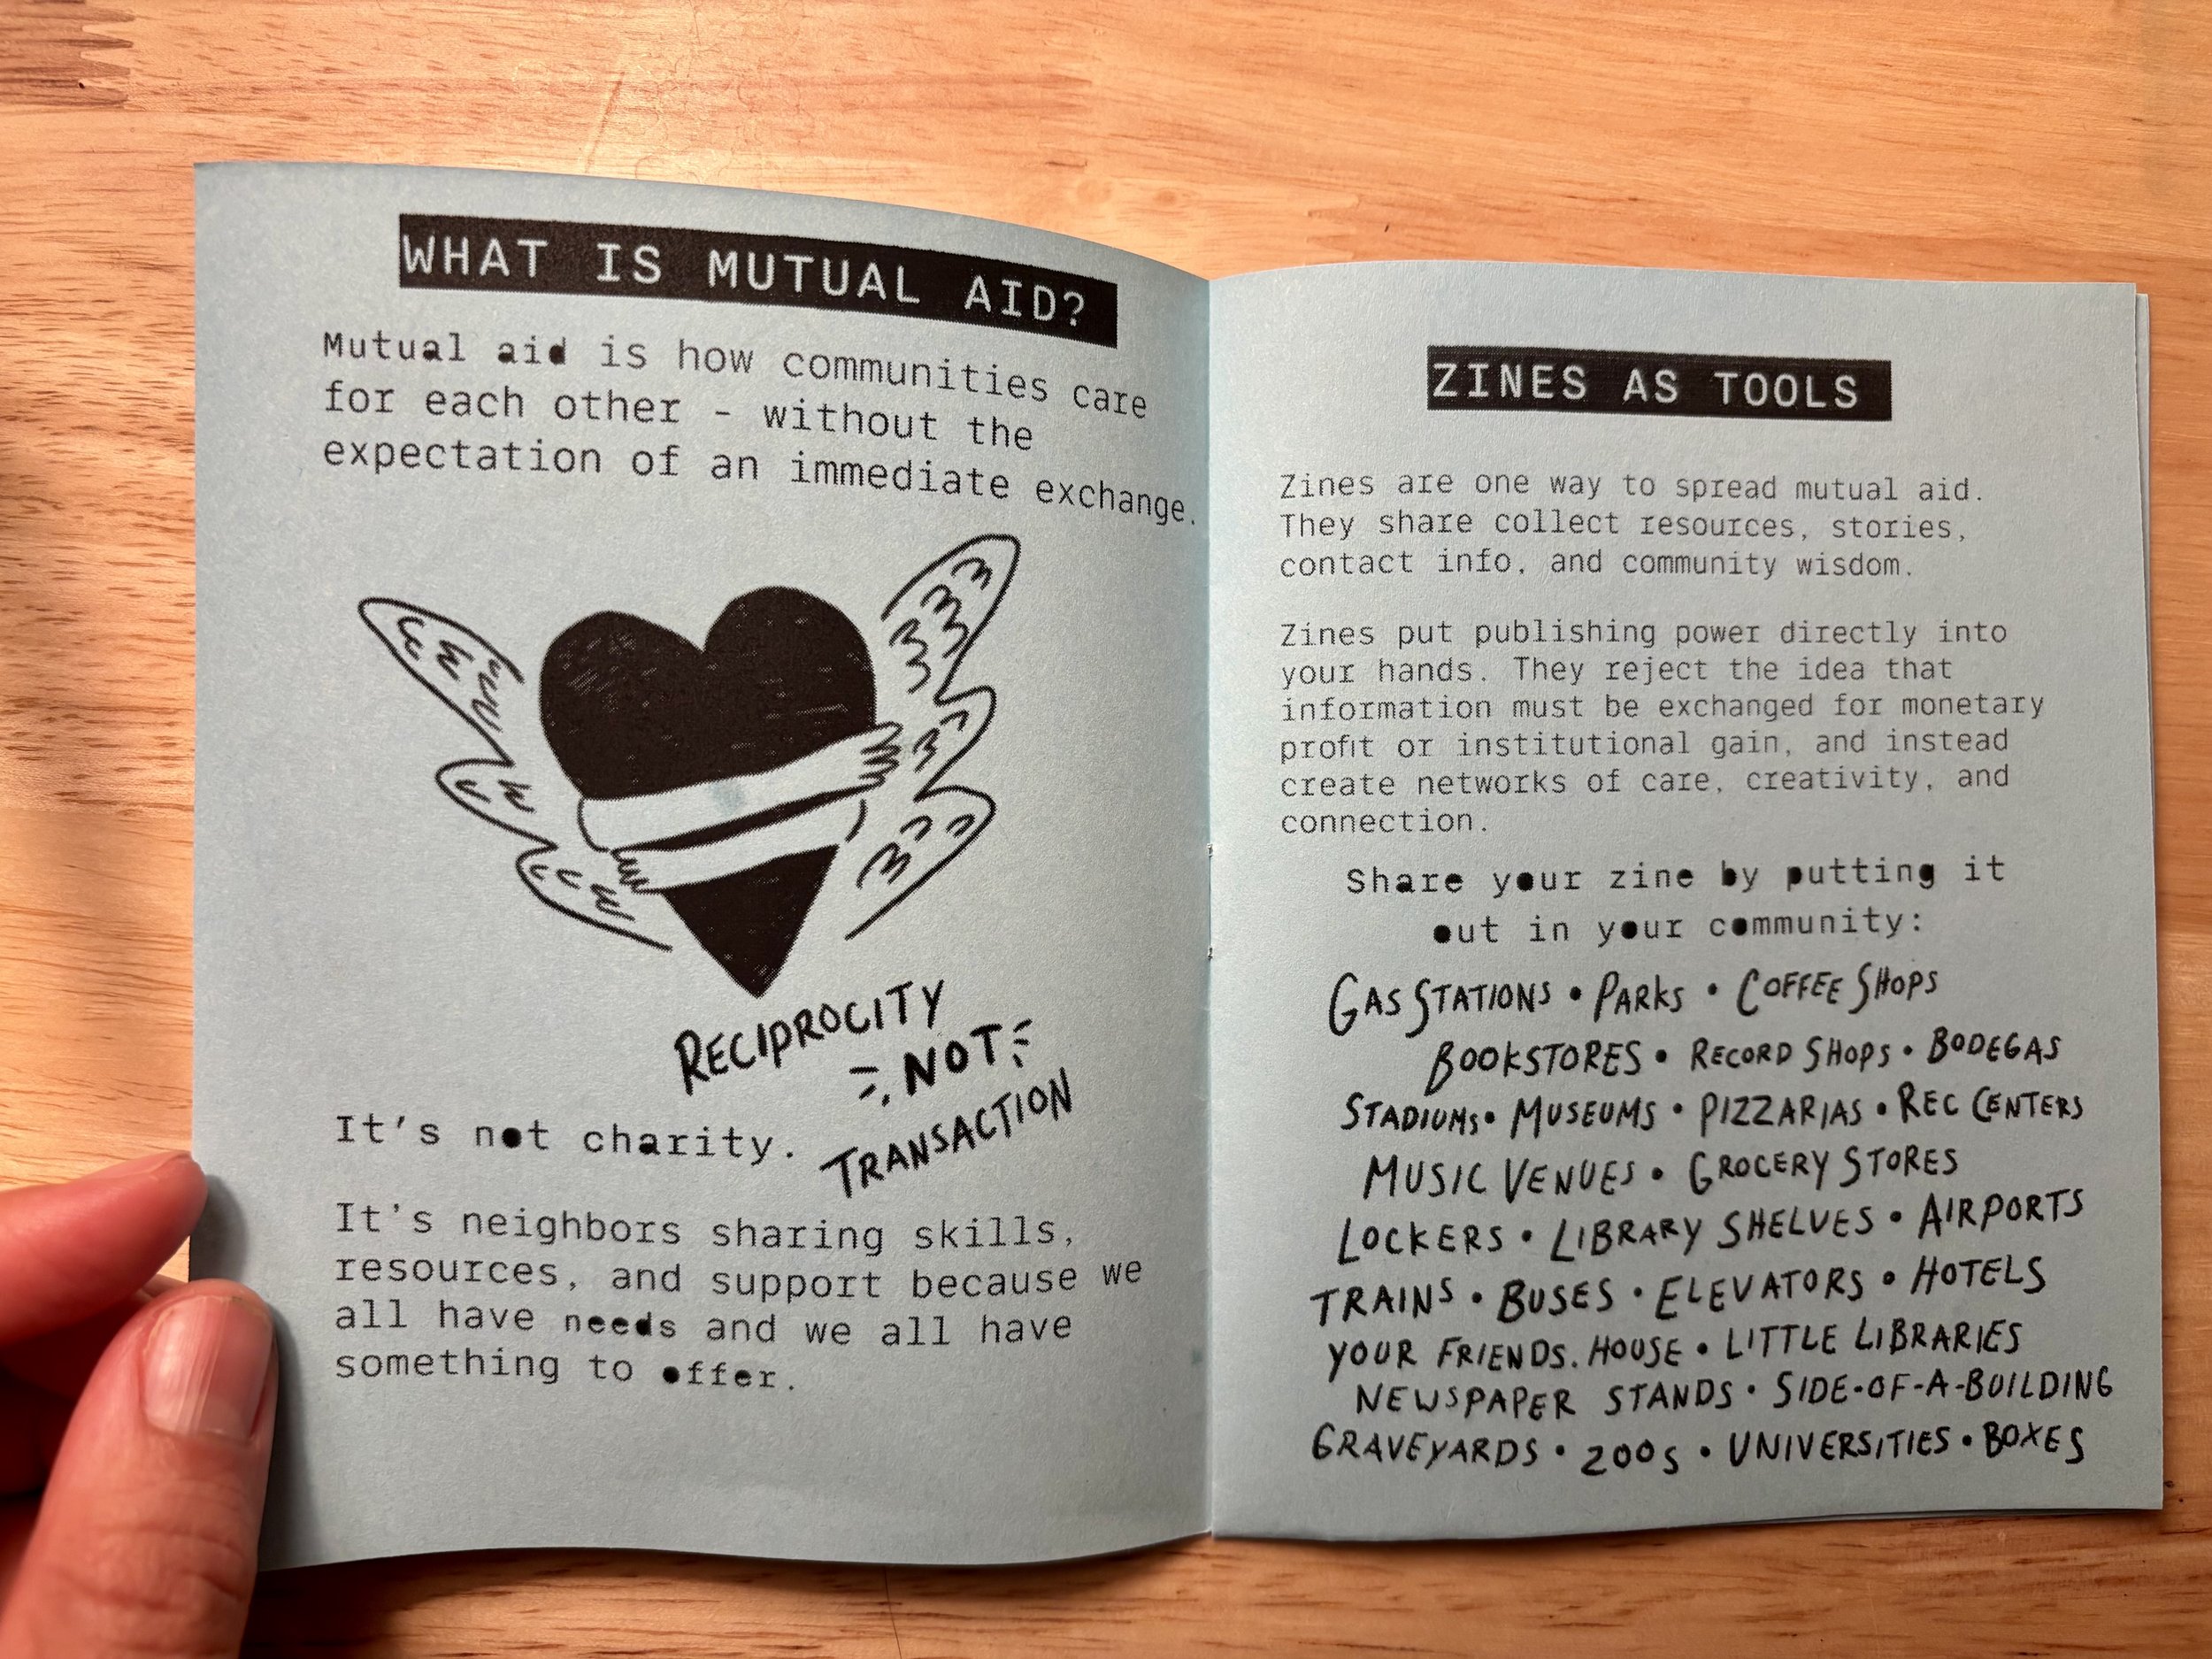 WHAT IS MUTUAL AID?
Mutual aid is how communities care
for each other - without the
expectation of an immediate exchange.
RECIPROCITY
NOT
TRANSACTION
It's not charity.
It's neighbors sharing skills,
resources, and support because we
all have needs and we all have
something to offer.
ZINES AS TOOLS
Zines are one way to spread mutual aid.
They share collect resources, stories,
contact info, and community wisdom.
Zines put publishing power directly into
your hands. They reject the idea that
information must be exchanged for monetary
profit or institutional gain, and instead
create networks of care, creativity, and
connection.
Share your zine by putting it
out in your community:
GAS STATIONS • PARKS • COFFEE SHOPS
BOOKSTORES • RECORD SHOPS • BODEGAS
STADIUMS • MUSEUMS • PIZZARIAS • REC CENTERS
MUSIC VENUES • GROCERY STORES
LOCKERS • LIBRARY SHELVES • AIRPORTS
TRAINS • BUSES • ELEVATORS • HOTELS
YOUR FRIENDS. HOUSE • LITTLE LIBRARIES
NEWSPAPER STANDS • SIDE-OF-A-BUILDING
GRAVEYARDS • ZOOS • UNIVERSITIES • BOXES